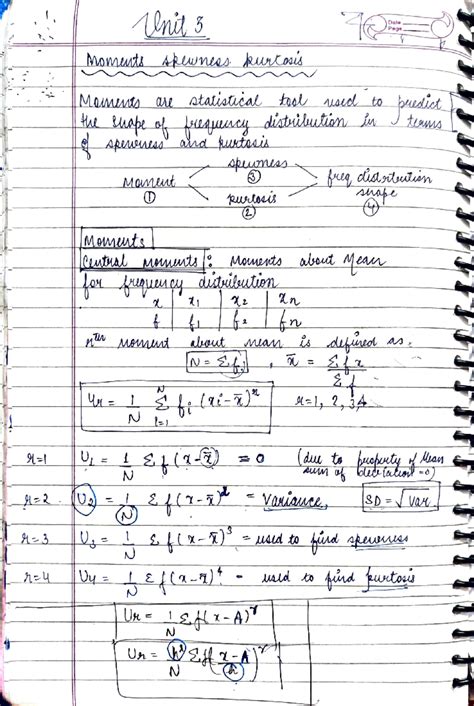 Unit 3
Date
Page
Moments skewness kurtosis
Moments are statistical tool used to predict
the shape of frequency distribution in terms
of skewness and kurtosis
skewness
③
moment
①
kurtosis
②
freq distribution
shape
④
Moments
Central moments : Moments about Mean
for frequency distribution
x | x₁ | x₂ | xn
f | f₁ | f₂ | fn
rth moment about mean is defined as.
N = Σfi , x̄ = Σfx / Σf
Ur = 1/N Σ(i=1 to N) fi (xi - x̄)^r r=1, 2, 3, 4
r=1 U₁ = 1/N Σf(x-x̄) = 0 (due to property of Mean
sum of deviation = 0)
r=2 U₂ = 1/N Σf(x-x̄)² = Variance, SD = √Var.
r=3 U₃ = 1/N Σf(x-x̄)³ - used to find skewness
r=4 U₄ = 1/N Σf(x-x̄)⁴ - used to find kurtosis
Ur = 1/N Σf(x-A)^r
Ur = h^r/N Σf(x-A / h)^r